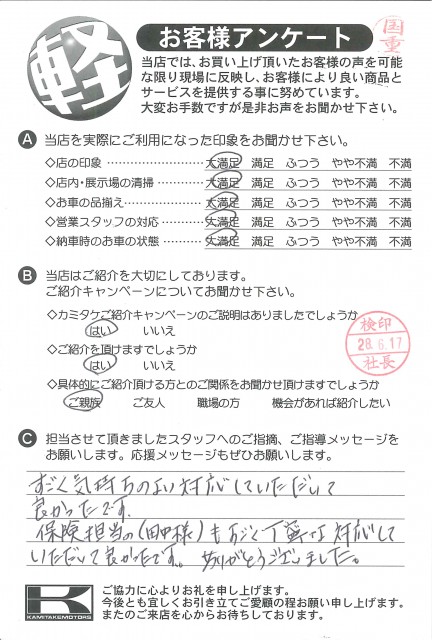 軽
お客様アンケート
国重
当店では、お買い上げ頂いたお客様の声を可能
な限り現場に反映し、お客様により良い商品と
サービスを提供する事に努めています。
大変お手数ですが是非お声をお聞かせ下さい。
A 当店を実際にご利用になった印象をお聞かせ下さい。
◇店の印象 大満足 満足 ふつう やや不満 不満
◇店内・展示場の清掃 大満足 満足 ふつう やや不満 不満
◇お車の品揃え 大満足 満足 ふつう やや不満 不満
◇営業スタッフの対応 大満足 満足 ふつう やや不満 不満
◇納車時のお車の状態 大満足 満足 ふつう やや不満 不満
B 当店はご紹介を大切にしてあります。
ご紹介キャンペーンについてお聞かせ下さい。
◇カミタケご紹介キャンペーンのご説明はありましたでしょうか
はい いいえ
◇ご紹介を頂けますでしょうか
はい いいえ
◇具体的にご紹介頂ける方とのご関係をお聞かせ頂けますでしょうか
ご親族 ご友人 職場の方 機会があれば紹介したい
検印
28.6.17
社長
C 担当させて頂きましたスタッフへのご指摘、ご指導メッセージを
お願いします。応援メッセージもぜひお願いします。
すごく気持ちのよい対応していただいて
良かったです。
保険担当の(田中様)もすごく丁寧な対応して
いただいて良かったです。ありがとうございました。
K
KAMITAKEMOTORS
ご協力に心よりお礼を申し上げます。
今後とも宜しくお引き立てご愛顧の程お願い申し上げます。
またのご来店を心からお待ちしております。